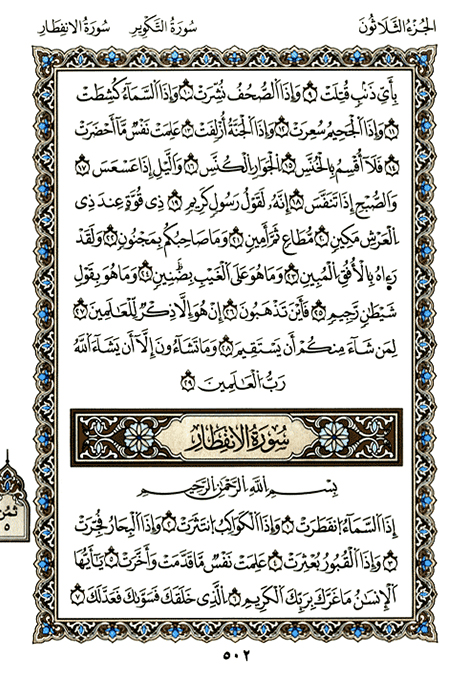 الجزء الثلاثون سورة التكوير سورة الانفطار
بِأَيِّ ذَنۢبٍ قُتِلَتۡ ٩ وَإِذَا ٱلصُّحُفُ نُشِرَتۡ ١٠ وَإِذَا ٱلسَّمَآءُ كُشِطَتۡ
١١ وَإِذَا ٱلۡجَحِيمُ سُعِّرَتۡ ١٢ وَإِذَا ٱلۡجَنَّةُ أُزۡلِفَتۡ ١٣ عَلِمَتۡ نَفۡسٞ مَّآ أَحۡضَرَتۡ
١٤ فَلَآ أُقۡسِمُ بِٱلۡخُنَّسِ ١٥ ٱلۡجَوَارِ ٱلۡكُنَّسِ ١٦ وَٱلَّيۡلِ إِذَا عَسۡعَسَ ١٧
وَٱلصُّبۡحِ إِذَا تَنَفَّسَ ١٨ إِنَّهُۥ لَقَوۡلُ رَسُولٖ كَرِيمٖ ١٩ ذِي قُوَّةٍ عِندَ ذِي
ٱلۡعَرۡشِ مَكِينٖ ٢٠ مُّطَاعٖ ثَمَّ أَمِينٖ ٢١ وَمَا صَاحِبُكُم بِمَجۡنُونٖ ٢٢ وَلَقَدۡ
رَءَاهُ بِٱلۡأُفُقِ ٱلۡمُبِينِ ٢٣ وَمَا هُوَ عَلَى ٱلۡغَيۡبِ بِضَنِينٖ ٢٤ وَمَا هُوَ بِقَوۡلِ
شَيۡطَٰنٖ رَّجِيمٖ ٢٥ فَأَيۡنَ تَذۡهَبُونَ ٢٦ إِنۡ هُوَ إِلَّا ذِكۡرٞ لِّلۡعَٰلَمِينَ ٢٧
لِمَن شَآءَ مِنكُمۡ أَن يَسۡتَقِيمَ ٢٨ وَمَا تَشَآءُونَ إِلَّآ أَن يَشَآءَ ٱللَّهُ
رَبُّ ٱلۡعَٰلَمِينَ ٢٩
سورة الانفطار
بِسۡمِ ٱللَّهِ ٱلرَّحۡمَٰنِ ٱلرَّحِيمِ
إِذَا ٱلسَّمَآءُ ٱنفَطَرَتۡ ١ وَإِذَا ٱلۡكَوَاكِبُ ٱنتَثَرَتۡ ٢ وَإِذَا ٱلۡبِحَارُ فُجِّرَتۡ
٣ وَإِذَا ٱلۡقُبُورُ بُعۡثِرَتۡ ٤ عَلِمَتۡ نَفۡسٞ مَّا قَدَّمَتۡ وَأَخَّرَتۡ ٥ يَٰٓأَيُّهَا
ٱلۡإِنسَٰنُ مَا غَرَّكَ بِرَبِّكَ ٱلۡكَرِيمِ ٦ ٱلَّذِي خَلَقَكَ فَسَوَّىٰكَ فَعَدَلَكَ ٧
ثمن
٥
٥٠٢